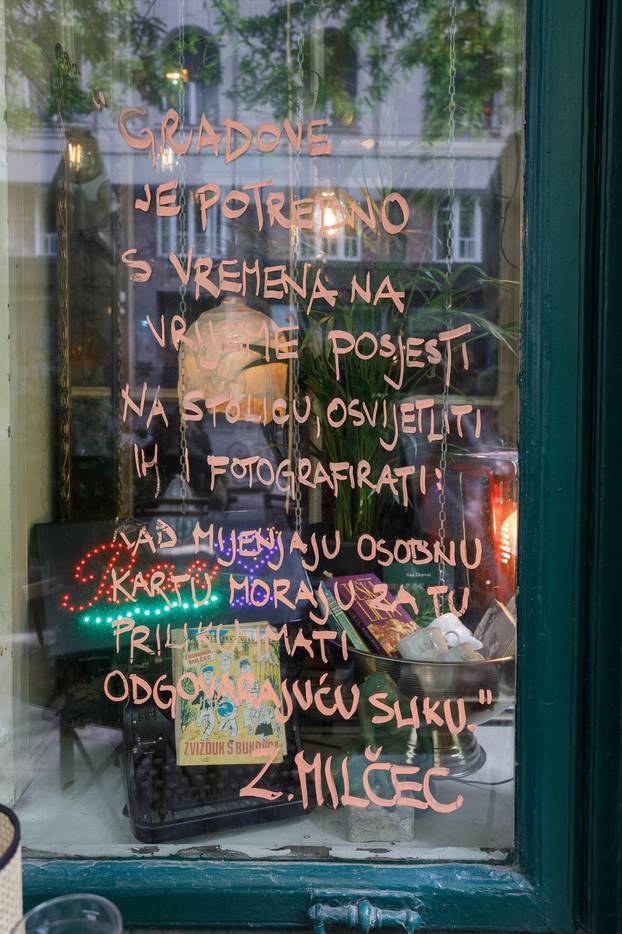 "GRADOVE
JE POTREBNO
S VREMENA NA
VRIJEME POSJESTI
NA STOLICU, OSVIJETLITI
IH I FOTOGRAFIRATI:
KAD MIJENJAJU OSOBNU
KARTU MORAJU ZA TU
PRILIKU IMATI
ODGOVARAJUĆU SLIKU."
Z. MILČEC
MILČEC
ZVIŽDUK S BUKOVCA